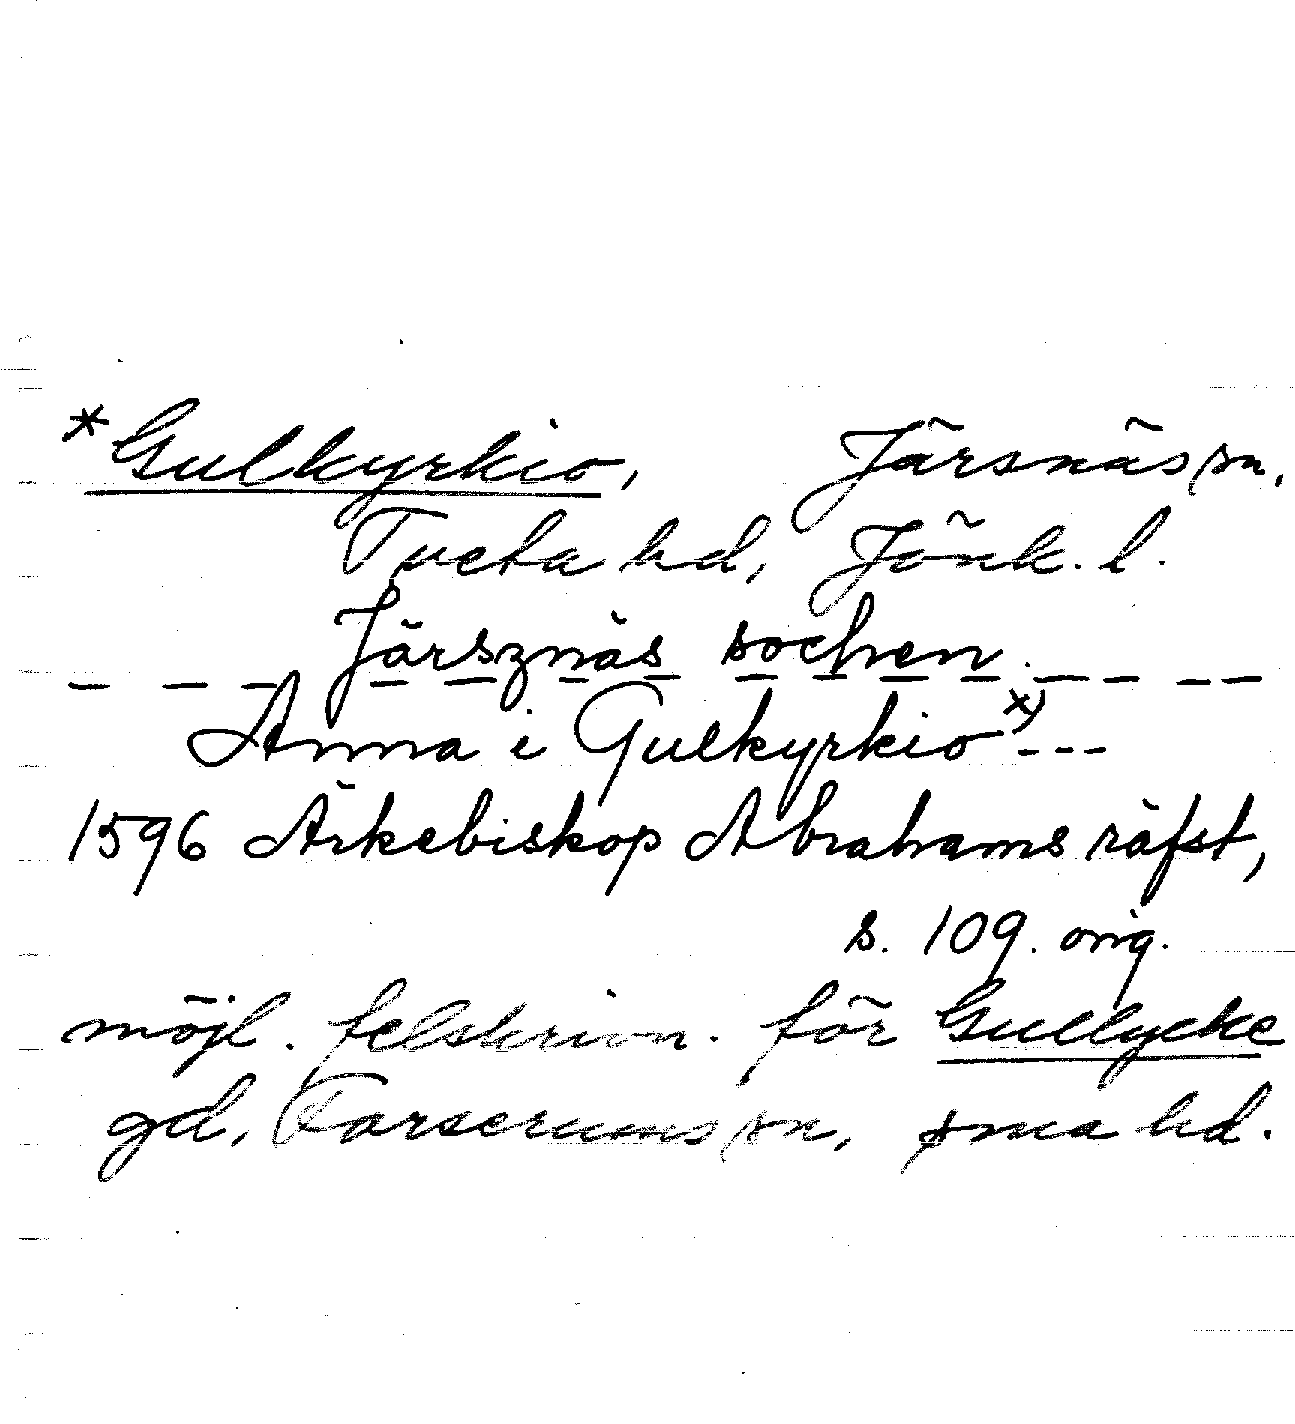 *Gulkyrkio, Järsnäs sn,
Tveta hd, Jönk. l.
Järsznäs sochen.
_ _ _ _ _ _ _ _ _ _ _ _ _
Anna i Gulkyrkio x) - - -
1596 Ärkebiskop Abrahams räfst,
s. 109. orig.
möjl. felskrivn. för Gullycke
gd, Forserums sn, sma hd.